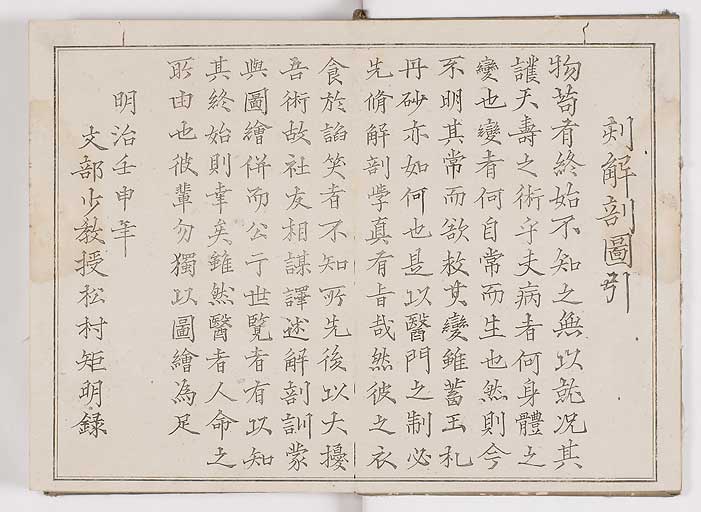 刻解剖圖引
物苟有終始不知之無以就況其
護天壽之術乎夫病者何身體之
變也變者何自常而生也然則今
不明其常而欲救其變雖蓄玉札
丹砂亦如何也是以醫門之制必
先脩解剖學真有旨哉然彼之衣
食於諂笑者不知所先後以大擾
吾術故社友相謀譯述解剖訓蒙
與圖繪併而公于世覽者有以知
其終始則幸矣雖然醫者人命之
所由也彼輩勿獨以圖繪為足
明治壬申年
文部少教授松村矩明録